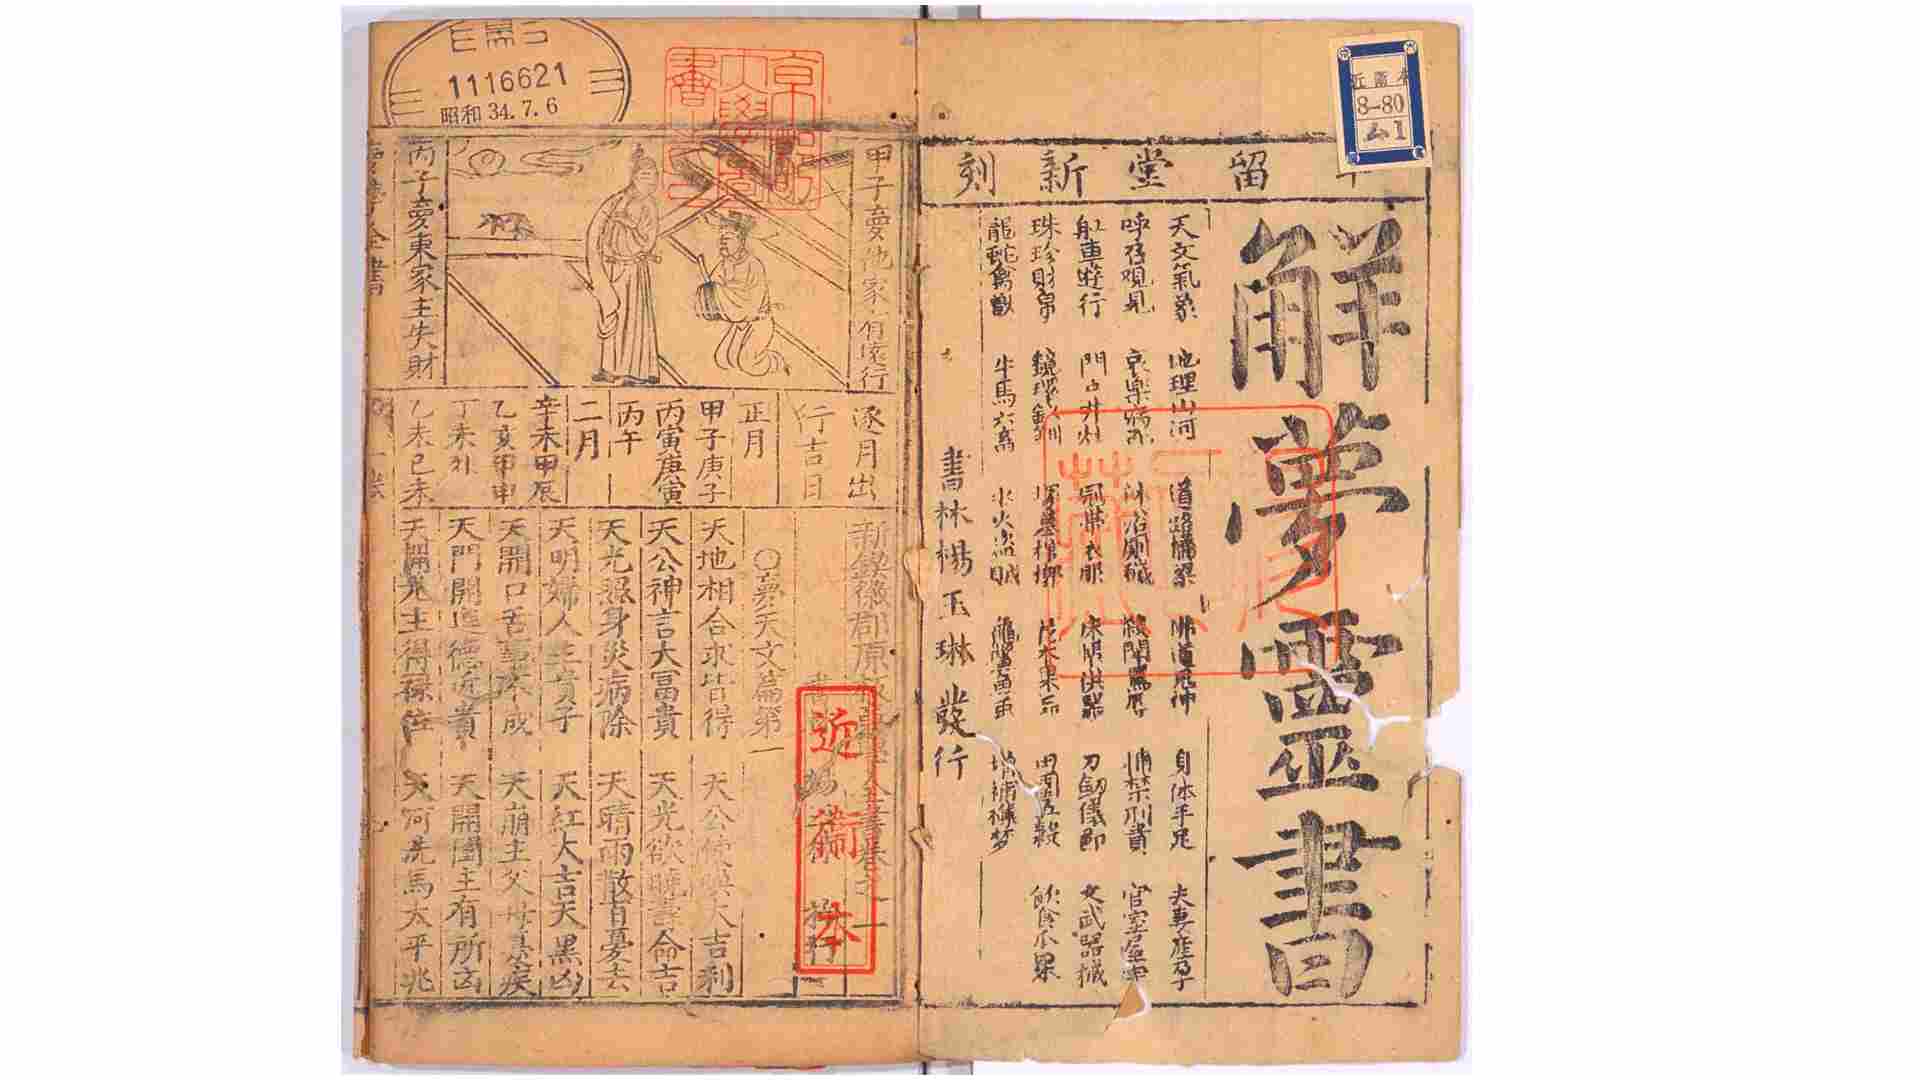 留堂新刻
解夢靈書
天文氣象 地理山河 道路橋梁 佛道鬼神 身体手足 夫妻產孕
呼召觀見 哀樂病死 沐浴厠穢 殺鬪罵辱 捕禁刑責 官室屋宇
舡車遊行 門户井灶 冠帶衣服 床帳洪器 刀劔儀節 文武器械
珠珍財帛 鏡環釵釧 塚墓棺槨 花木果品 田園五穀 飲食瓜果
龍蛇禽獸 牛馬六畜 水火盗賊 龜鱉魚虫 增補襍梦
書林楊玉琳發行
近衞本
8-80
ム1
1116621
昭和 34. 7. 6
甲子夢他家有遠行
丙子夢東家主失財
逐月出
行吉日
正月
甲子庚子
丙寅庚寅
丙午
二月
辛未甲辰
乙亥甲申
丁未
乙未己未
新鍥徽郡原板夢學全書卷之一
〇夢天文篇第一
天地相合求皆得 天公使喚大吉利
天公神言大冨貴 天光欲曉壽命吉
天光照身災病除 天晴雨散百憂去
天明婦人生貴子 天紅大吉天黑凶
天開口舌事不成 天崩主父母喪疾
天門開進德近貴 天開團主有所凶
天開光主得祿位 天河洗馬太平兆
近衞本